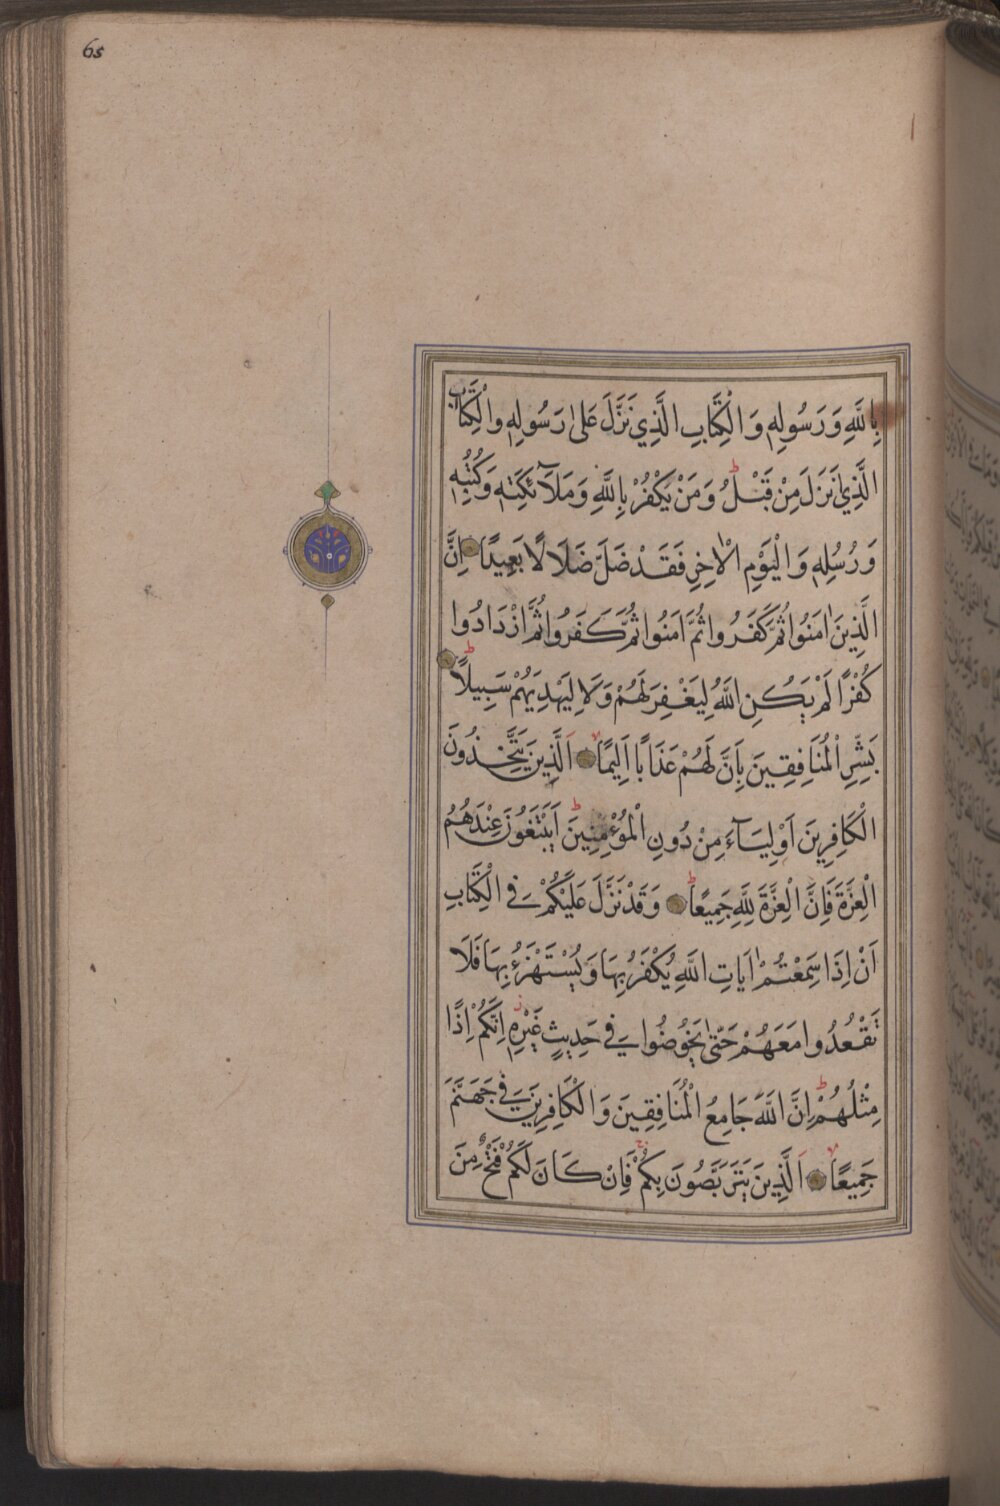 65
بِاللَّهِ وَرَسُولِهِ وَالْكِتَابِ الَّذِي نَزَّلَ عَلَىٰ رَسُولِهِ وَالْكِتَابِ
الَّذِي أَنْزَلَ مِنْ قَبْلُ ط وَمَنْ يَكْفُرْ بِاللَّهِ وَمَلَآئِكَتِهِ وَكُتُبِهِ
وَرُسُلِهِ وَالْيَوْمِ الْاٰخِرِ فَقَدْ ضَلَّ ضَلَالًا بَعِيدًا اِنَّ
الَّذِينَ اٰمَنُوا ثُمَّ كَفَرُوا ثُمَّ اٰمَنُوا ثُمَّ كَفَرُوا ثُمَّ ازْدَادُوا
كُفْرًا لَمْ يَكُنِ اللَّهُ لِيَغْفِرَ لَهُمْ وَلَا لِيَهْدِيَهُمْ سَبِيلًا ط
بَشِّرِ الْمُنَافِقِينَ بِاَنَّ لَهُمْ عَذَابًا اَلِيمًا لا اَلَّذِينَ يَتَّخِذُونَ
الْكَافِرِينَ اَوْلِيَآءَ مِنْ دُونِ الْمُؤْمِنِينَ ط اَيَبْتَغُونَ عِنْدَهُمُ
الْعِزَّةَ فَاِنَّ الْعِزَّةَ لِلَّهِ جَمِيعًا ط وَقَدْ نَزَّلَ عَلَيْكُمْ فِي الْكِتَابِ
اَنْ اِذَا سَمِعْتُمْ اٰيَاتِ اللَّهِ يُكْفَرُ بِهَا وَيُسْتَهْزَءُ بِهَا فَلَا
تَقْعُدُوا مَعَهُمْ حَتّٰى يَخُوضُوا فِي حَدِيثٍ غَيْرِهِ ز اِنَّكُمْ اِذًا
مِثْلُهُمْ ط اِنَّ اللَّهَ جَامِعُ الْمُنَافِقِينَ وَالْكَافِرِينَ فِي جَهَنَّمَ
جَمِيعًا لا اَلَّذِينَ يَتَرَبَّصُونَ بِكُمْ ج فَاِنْ كَانَ لَكُمْ فَتْحٌ مِنَ